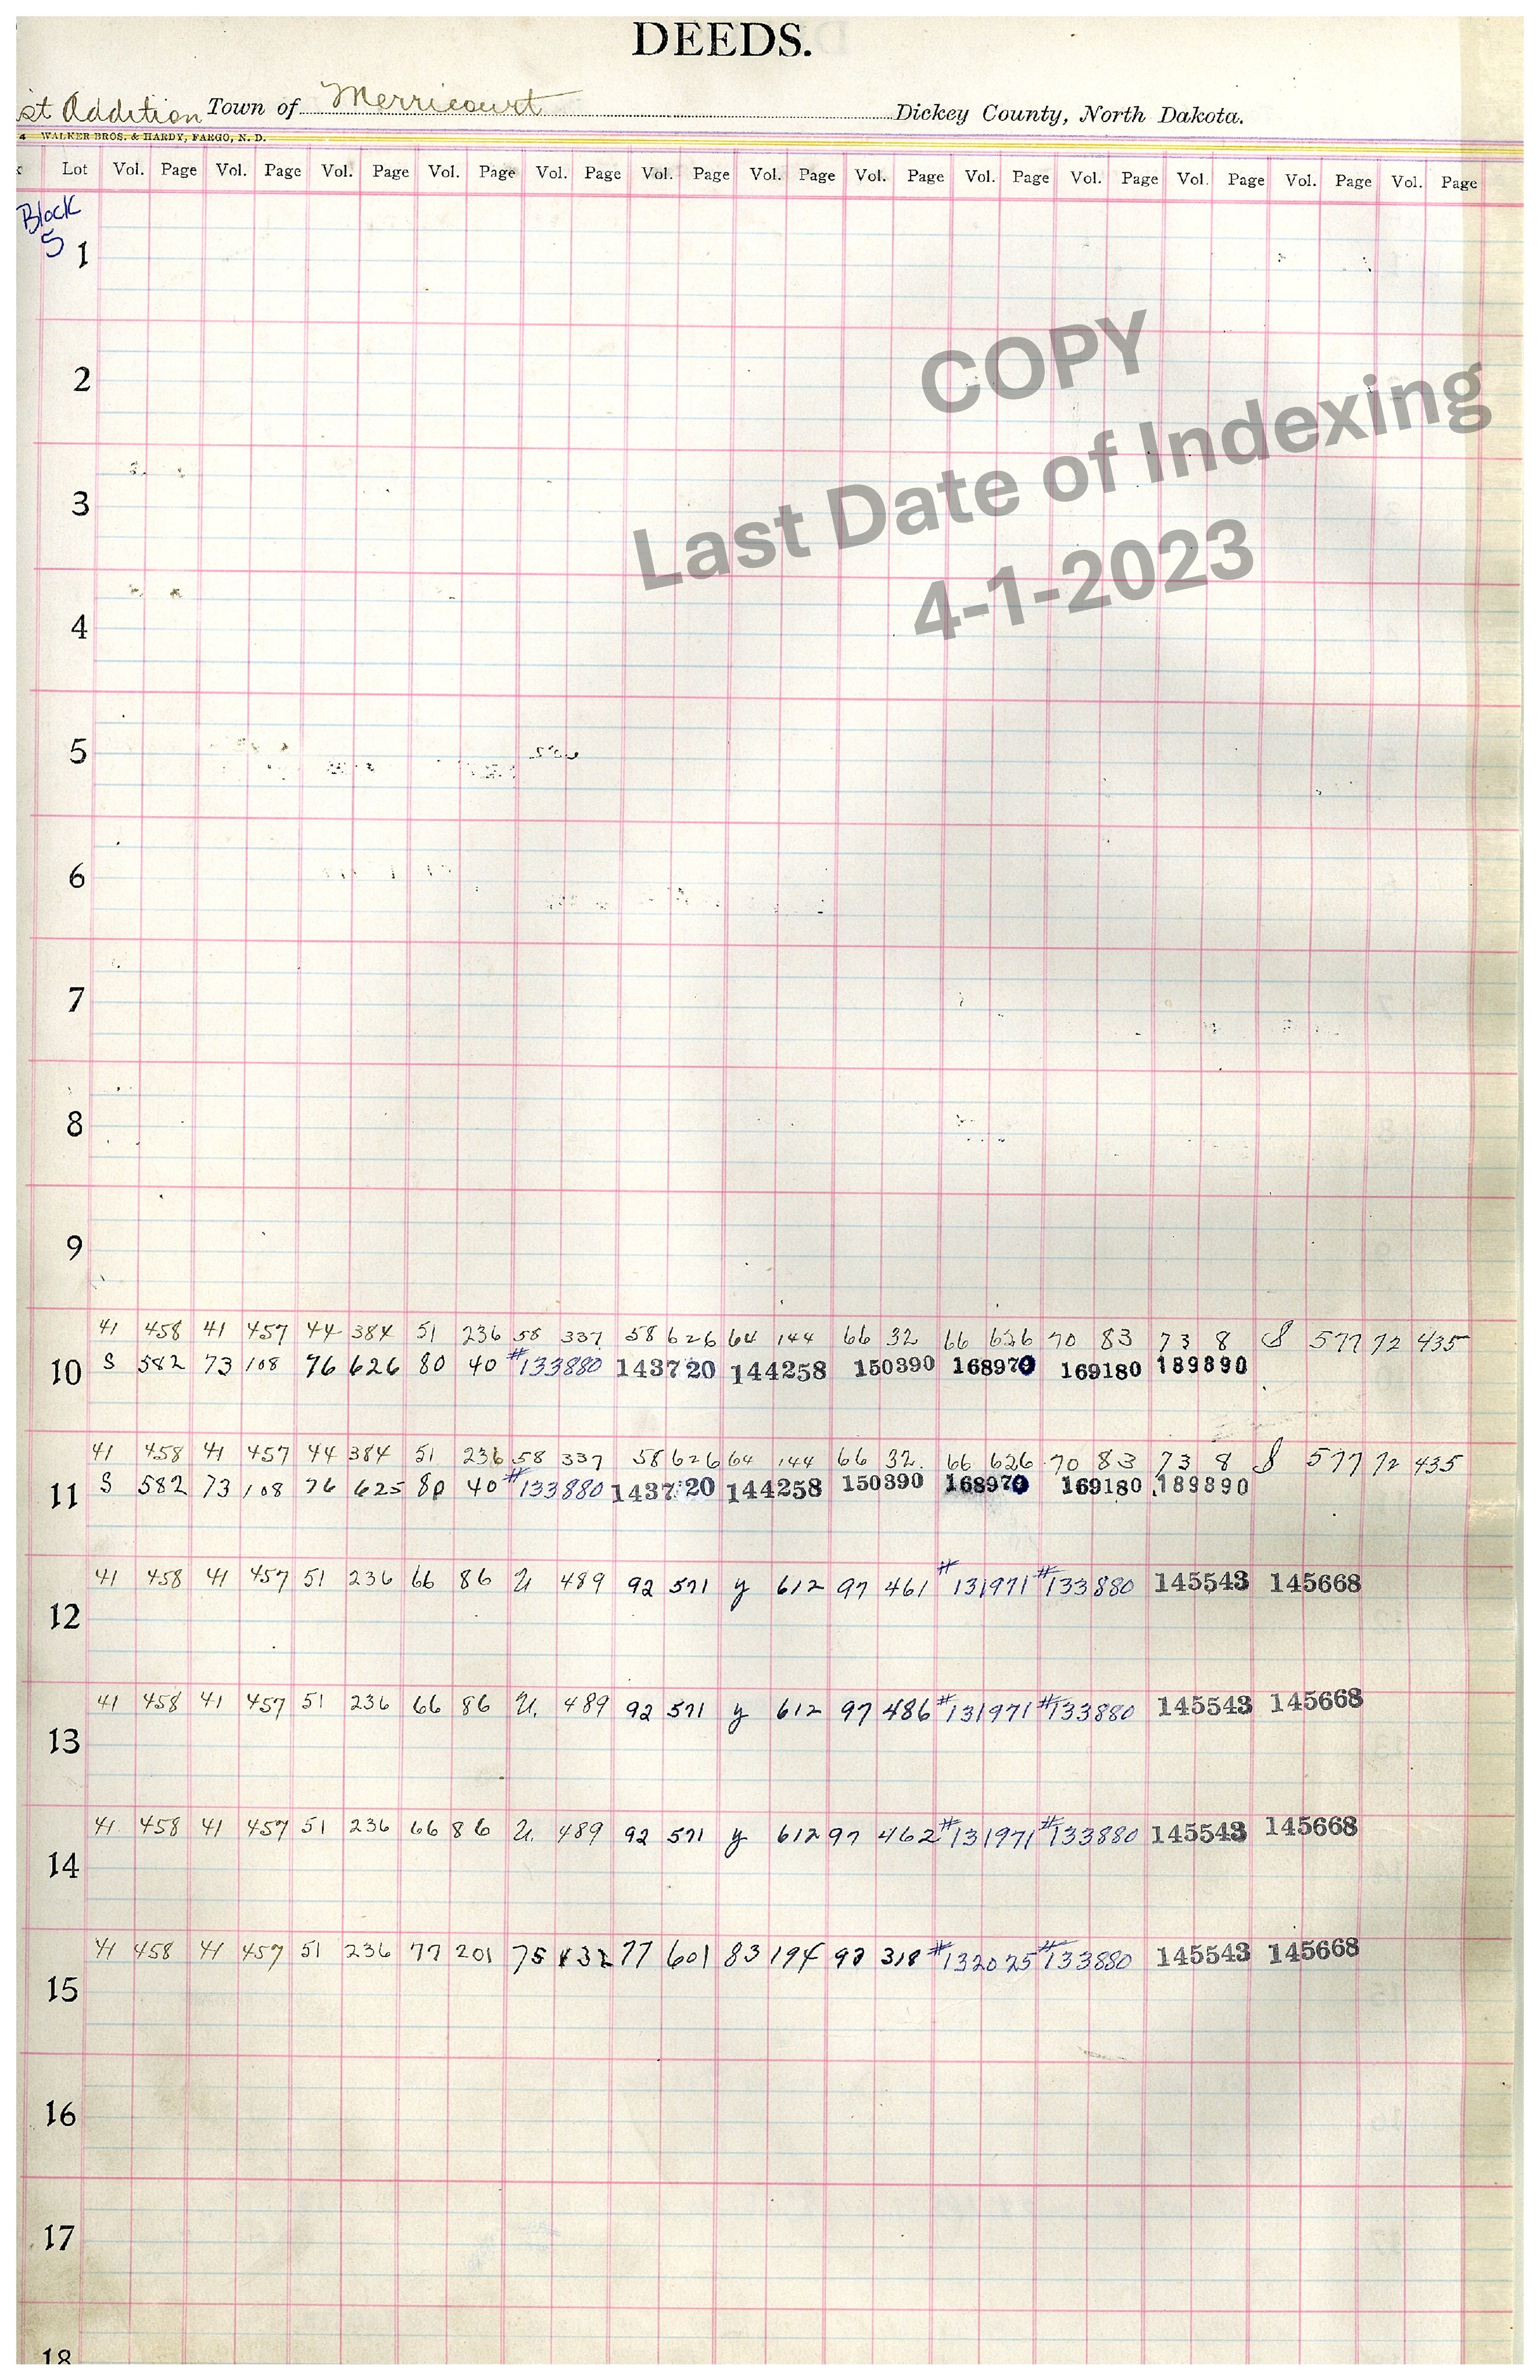 DEEDS.
st Addition Town of Merricourt Dickey County, North Dakota.
4 WALKER BROS. & HARDY, FARGO, N. D.
Lot Vol. Page Vol. Page Vol. Page Vol. Page Vol. Page Vol. Page Vol. Page Vol. Page Vol. Page Vol. Page Vol. Page Vol. Page Vol. Page
Block
5
1
COPY
2
Last Date of Indexing
3
4-1-2023
4
5
6
7
8
9
41 458 41 457 44 384 51 236 58 337 58 626 64 144 66 32 66 626 70 83 73 8 S 577 72 435
10 S 582 73 108 76 626 80 40 #133880 143720 144258 150390 168970 169180 189890
41 458 41 457 44 384 51 236 58 337 58 626 64 144 66 32 66 626 70 83 73 8 S 577 72 435
11 S 582 73 108 76 625 80 40 #133880 143720 144258 150390 168970 169180 189890
41 458 41 457 51 236 66 86 U 489 92 571 y 612 97 461 #131971 #133880 145543 145668
12
41 458 41 457 51 236 66 86 U. 489 92 571 y 612 97 486 #131971 #133880 145543 145668
13
41 458 41 457 51 236 66 86 U. 489 92 571 y 612 97 462 #131971 #133880 145543 145668
14
41 458 41 457 51 236 77 201 75 77 601 83 194 318 #132025 #133880 145543 145668
15
16
17
18